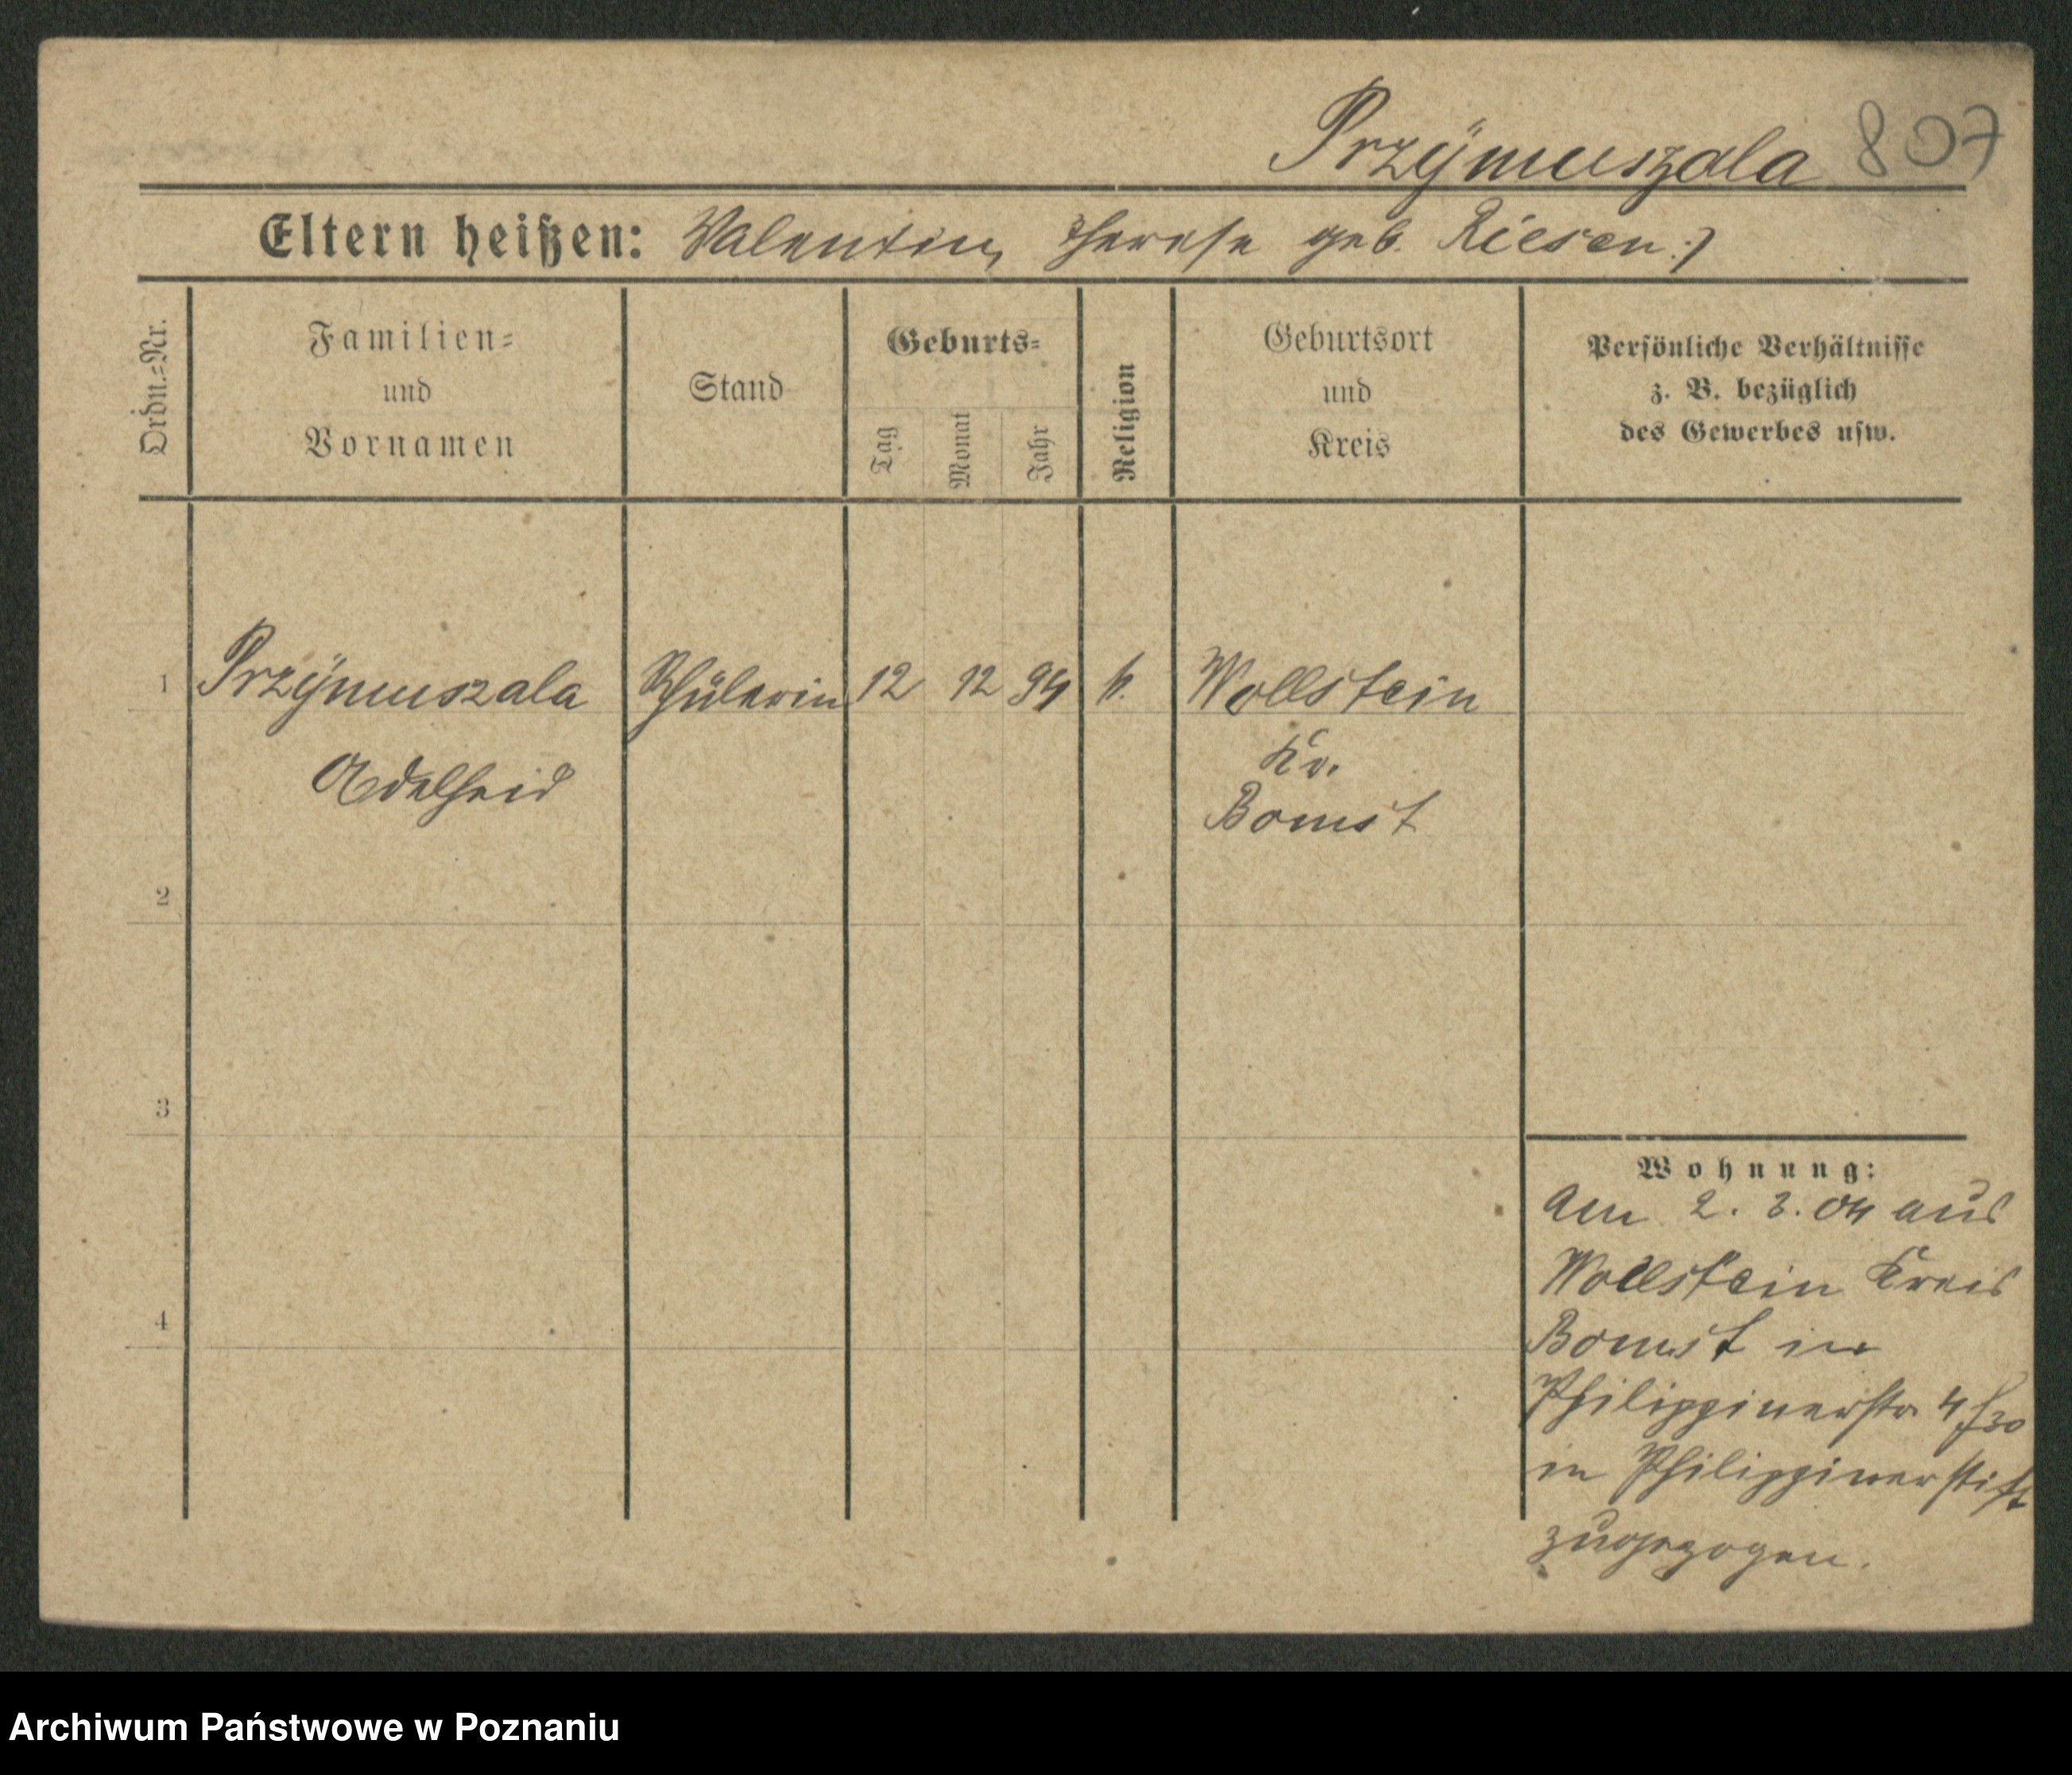 Przÿmuszala 807
Eltern heißen: Valentin, Therese geb. Riesen:)
Ordn.=Nr.
Familien=
und
Vornamen
Stand
Geburts=
Tag
Monat
Jahr
Religion
Geburtsort
und
Kreis
Persönliche Verhältnisse
z. B. bezüglich
des Gewerbes usw.
1 Przÿmuszala Schülerin 12 12 94 k. Wollstein
Kr.
Adelheid Bomst
2
3
4
Wohnung:
Am 2. 3. 04 aus
Wollstein Kreis
Bomst in
Philippinerstr 4
in Philippinerstift
zugezogen.
Archiwum Państwowe w Poznaniu